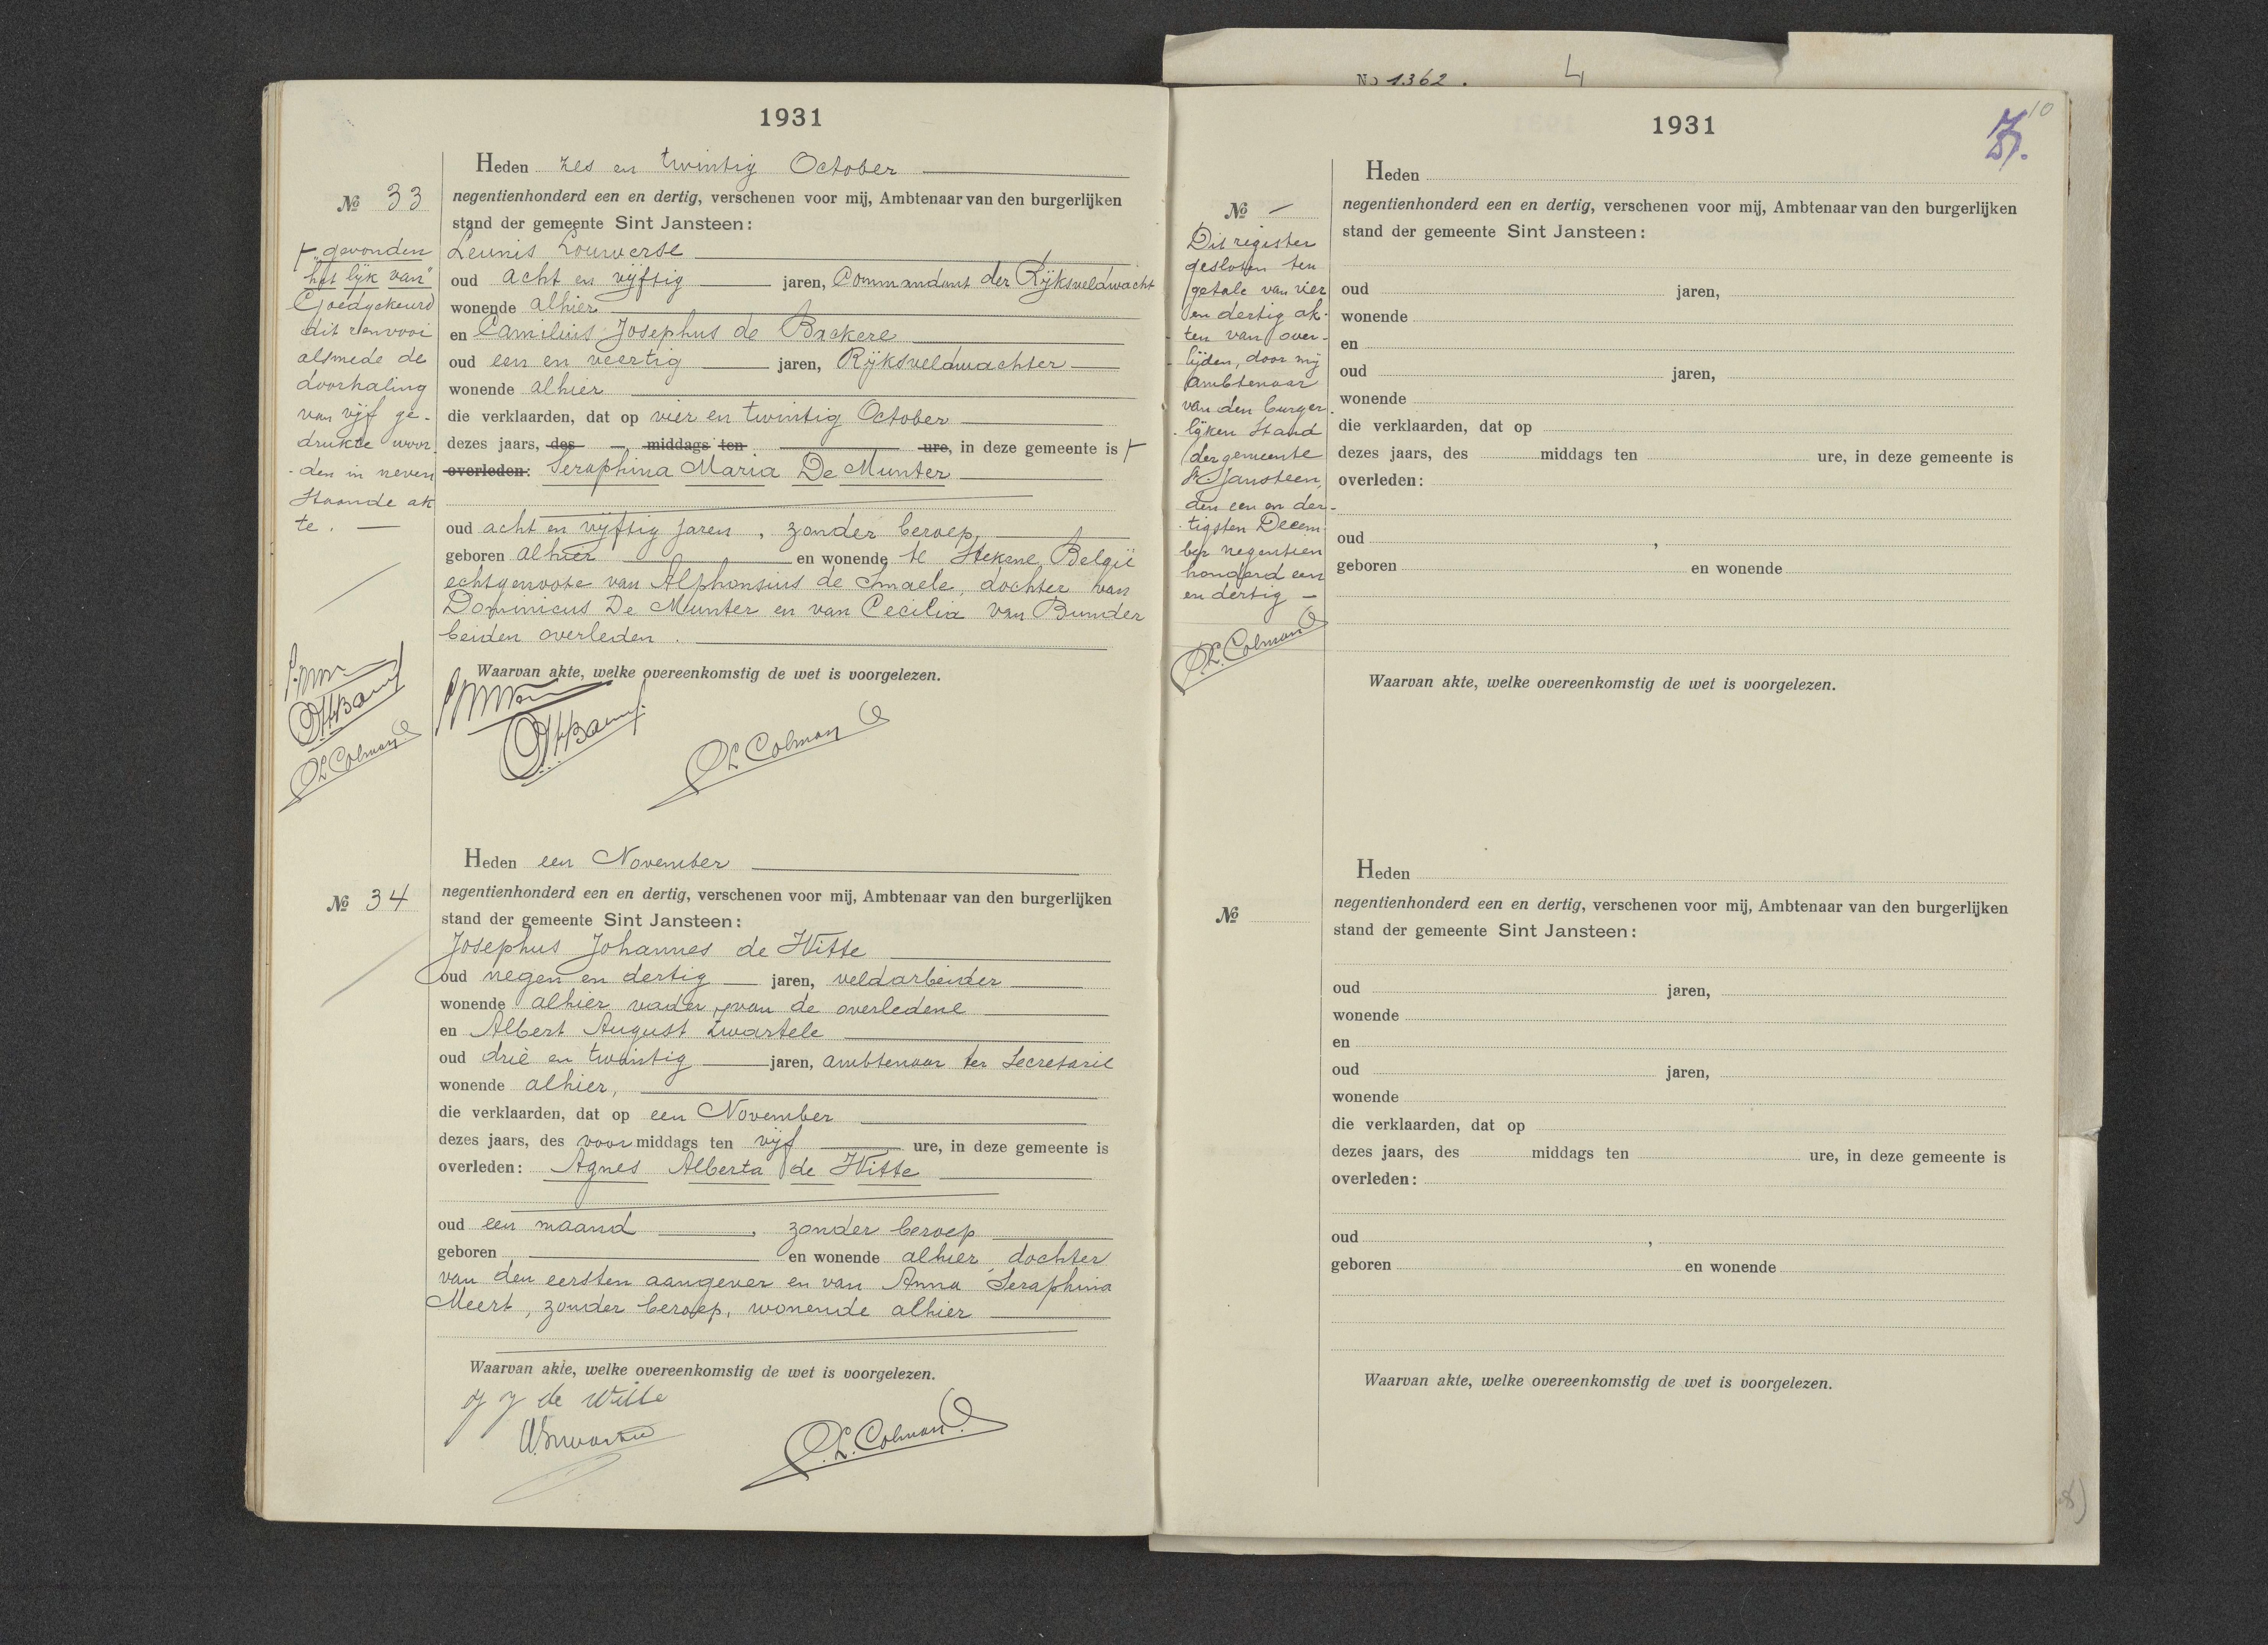 1931
Heden zes en twintig October
№ 33
negentienhonderd een en dertig, verschenen voor mij, Ambtenaar van den burgerlijken
stand der gemeente Sint Jansteen:
Leunis Louwerse
oud acht en vijftig jaren, Commandant der Rijksveldwacht
wonende alhier
en Camilius Josephus de Backere
oud een en veertig jaren, Rijksveldwachter
wonende alhier
die verklaarden, dat op vier en twintig October
dezes jaars, des middags ten ure, in deze gemeente is
overleden: Seraphina Maria De Munter
oud acht en vijftig jaren, zonder beroep,
geboren alhier en wonende te Stekene België
echtgenoote van Alphonsius de Smaele, dochter van
Dominicus De Munter en van Cecilia van Bunder
beiden overleden.
Waarvan akte, welke overeenkomstig de wet is voorgelezen.
L Colman
"gevonden
het lijk van"
Goedgekeurd
dit renvooi
alsmede de
doorhaling
van vijf ge-
drukte woor-
den in neven
staande ak
te.
L Colman
Heden een November
№ 34
negentienhonderd een en dertig, verschenen voor mij, Ambtenaar van den burgerlijken
stand der gemeente Sint Jansteen:
Josephus Johannes de Witte
oud negen en dertig jaren, veldarbeider
wonende alhier vader van de overledene
en Albert August Zwartele
oud drie en twintig jaren, ambtenaar ter Secretarie
wonende alhier,
die verklaarden, dat op een November
dezes jaars, des voormiddags ten vijf ure, in deze gemeente is
overleden: Agnes Alberta de Witte
oud een maand, zonder beroep
geboren en wonende alhier, dochter
van den eersten aangever en van Anna Seraphina
Meert, zonder beroep, wonende alhier
Waarvan akte, welke overeenkomstig de wet is voorgelezen.
J J de Witte
L. Colman
No 1362. 4
1931
10
Heden
№ —
negentienhonderd een en dertig, verschenen voor mij, Ambtenaar van den burgerlijken
stand der gemeente Sint Jansteen:
oud jaren,
wonende
en
oud jaren,
wonende
die verklaarden, dat op
dezes jaars, des middags ten ure, in deze gemeente is
overleden:
oud ,
geboren en wonende
Waarvan akte, welke overeenkomstig de wet is voorgelezen.
Dit register
gesloten ten
getale van vier
en dertig ak-
ten van over-
lijden, door mij
Ambtenaar
van den burger-
lijken Stand
der gemeente
St Jansteen,
den een en der-
tigsten Decem
ber negentien
honderd een
en dertig —
L. Colman
Heden
№
negentienhonderd een en dertig, verschenen voor mij, Ambtenaar van den burgerlijken
stand der gemeente Sint Jansteen:
oud jaren,
wonende
en
oud jaren,
wonende
die verklaarden, dat op
dezes jaars, des middags ten ure, in deze gemeente is
overleden:
oud ,
geboren en wonende
Waarvan akte, welke overeenkomstig de wet is voorgelezen.
8)